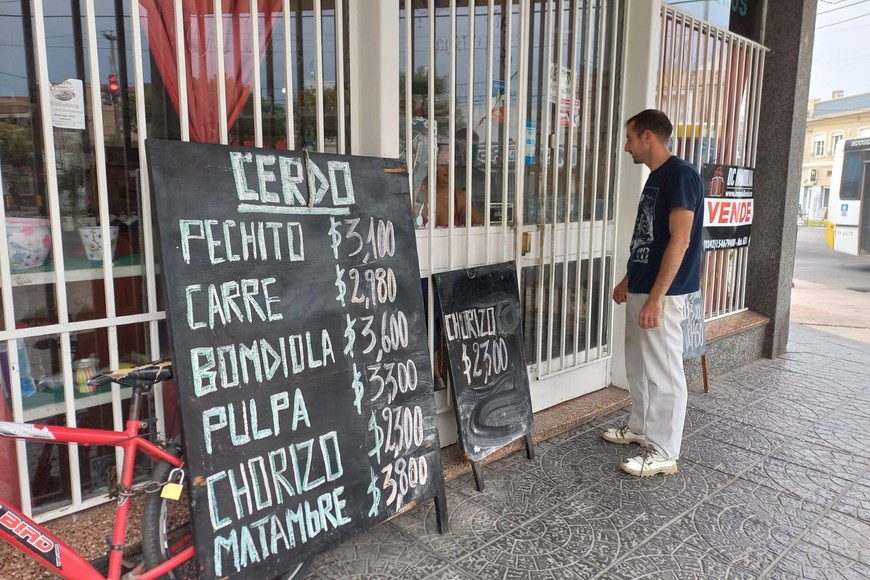 CERDO
PECHITO $3,100
CARRE $2,980
BONDIOLA $3,600
PULPA $3300
CHORIZO $2300
MATAMBRE $3,800
CHORIZO
$2300
VENDE
BIRD